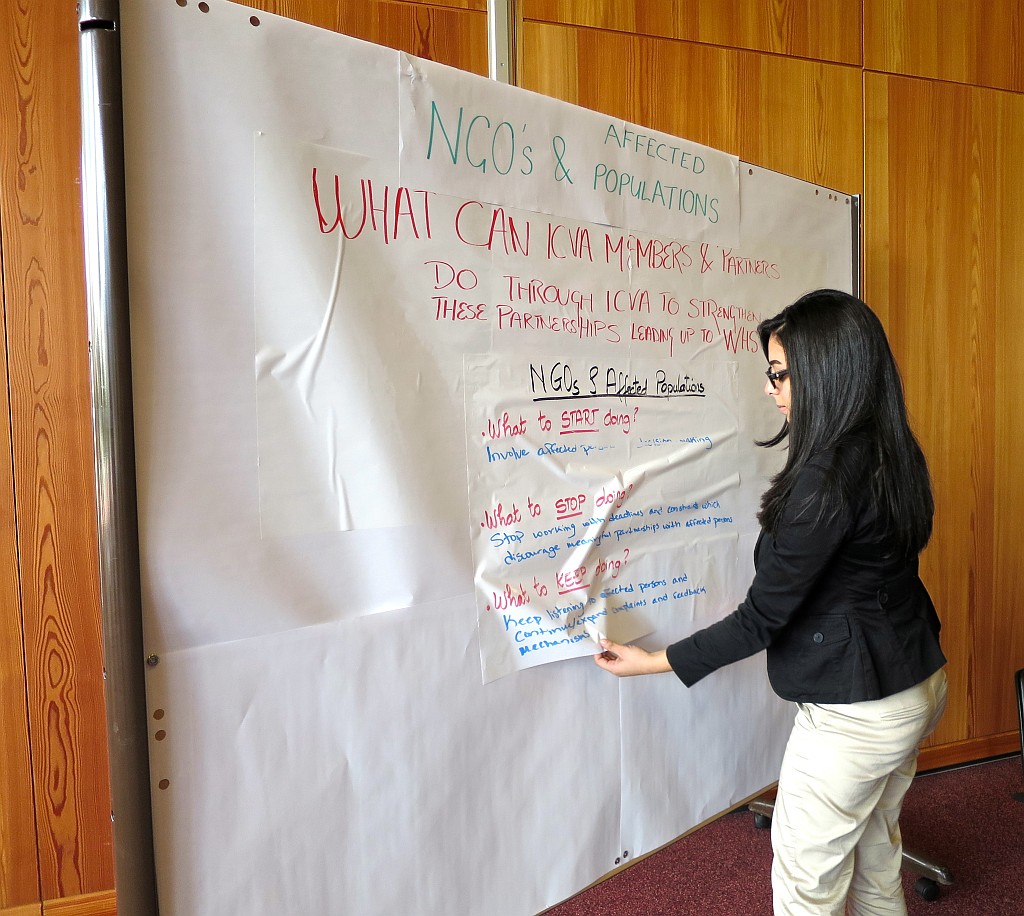 NGO's & AFFECTED POPULATIONS
WHAT CAN ICVA MEMBERS & PARTNERS
DO THROUGH ICVA TO STRENGTHEN
THESE PARTNERSHIPS LEADING UP TO WHS
NGOs & Affected Populations
• What to START doing?
Involve affected making
• What to STOP doing?
Stop working with deadlines and constraint which
discourage meaningful partnerships with affected persons
• What to KEEP doing?
Keep listening to affected persons and
continue/expand complaints and feedback
mechanisms